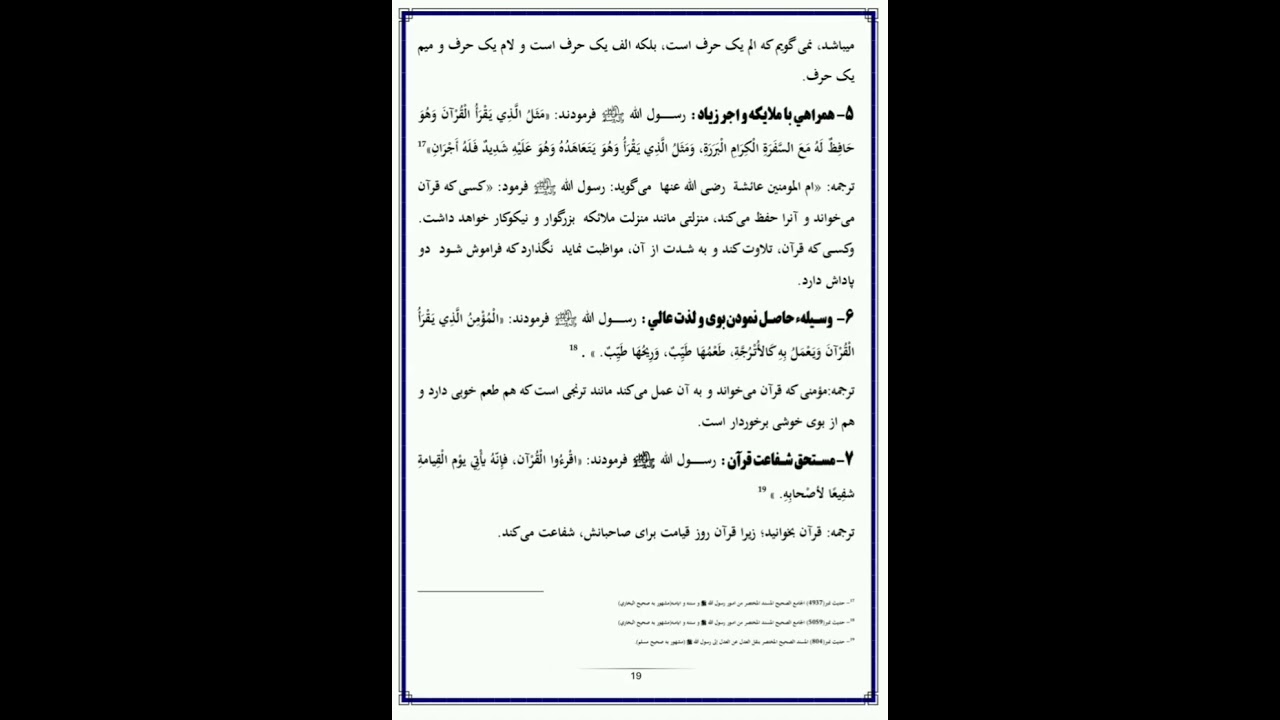 میباشد، نمی‌گویم که الم یک حرف است، بلکه الف یک حرف است و لام یک حرف و میم
یک حرف.
۵- همراهي با ملايكه و اجر زياد : رســول الله ﷺ فرمودند: «مَثَلُ الَّذِي يَقْرَأُ الْقُرْآنَ وَهُوَ
حَافِظٌ لَهُ مَعَ السَّفَرَةِ الْكِرَامِ الْبَرَرَةِ، وَمَثَلُ الَّذِي يَقْرَأُ وَهُوَ يَتَعَاهَدُهُ وَهُوَ عَلَيْهِ شَدِيدٌ فَلَهُ أَجْرَانِ»17
ترجمه: «ام المومنین عائشة رضی الله عنها می‌گوید: رسول الله ﷺ فرمود: «کسی که قرآن
می‌خواند و آنرا حفظ می‌کند، منزلتی مانند منزلت ملائکه بزرگوار و نیکوکار خواهد داشت.
وکسـی که قرآن، تلاوت کند و به شدت از آن، مواظبت نماید نگذارد که فراموش شـود دو
پاداش دارد.
۶- وسيلهء حاصل نمودن بوى و لذت عالي : رســول الله ﷺ فرمودند: «الْمُؤْمِنُ الَّذِي يَقْرَأُ
الْقُرْآنَ وَيَعْمَلُ بِهِ كَالأُتْرُجَّةِ، طَعْمُهَا طَيِّبٌ، وَرِيحُهَا طَيِّبٌ. » . 18
ترجمه:مؤمنی که قرآن می‌خواند و به آن عمل می‌کند مانند ترنجی است که هم طعم خوبی دارد و
هم از بوی خوشی برخوردار است.
۷-مستحق شفاعت قرآن : رســول الله ﷺ فرمودند: «اقْرءُوا الْقُرْآن، فإِنّهُ يأْتِي يوْم الْقِيامةِ
شفِيعًا لأصْحابِهِ. » 19
ترجمه: قرآن بخوانید؛ زیرا قرآن روز قیامت برای صاحبانش، شفاعت می‌کند.
17- حدیث نمبر(4937) الجامع الصحیح المسند المختصر من امور رسول الله ﷺ و سننه و ایامه(مشهور به صحیح البخاری)
18- حدیث نمبر(5059) الجامع الصحیح المسند المختصر من امور رسول الله ﷺ و سننه و ایامه(مشهور به صحیح البخاری)
19- حدیث نمبر(804) المسند الصحیح المختصر بنقل العدل عن العدل إلى رسول الله ﷺ (مشهور به صحیح مسلم).
19